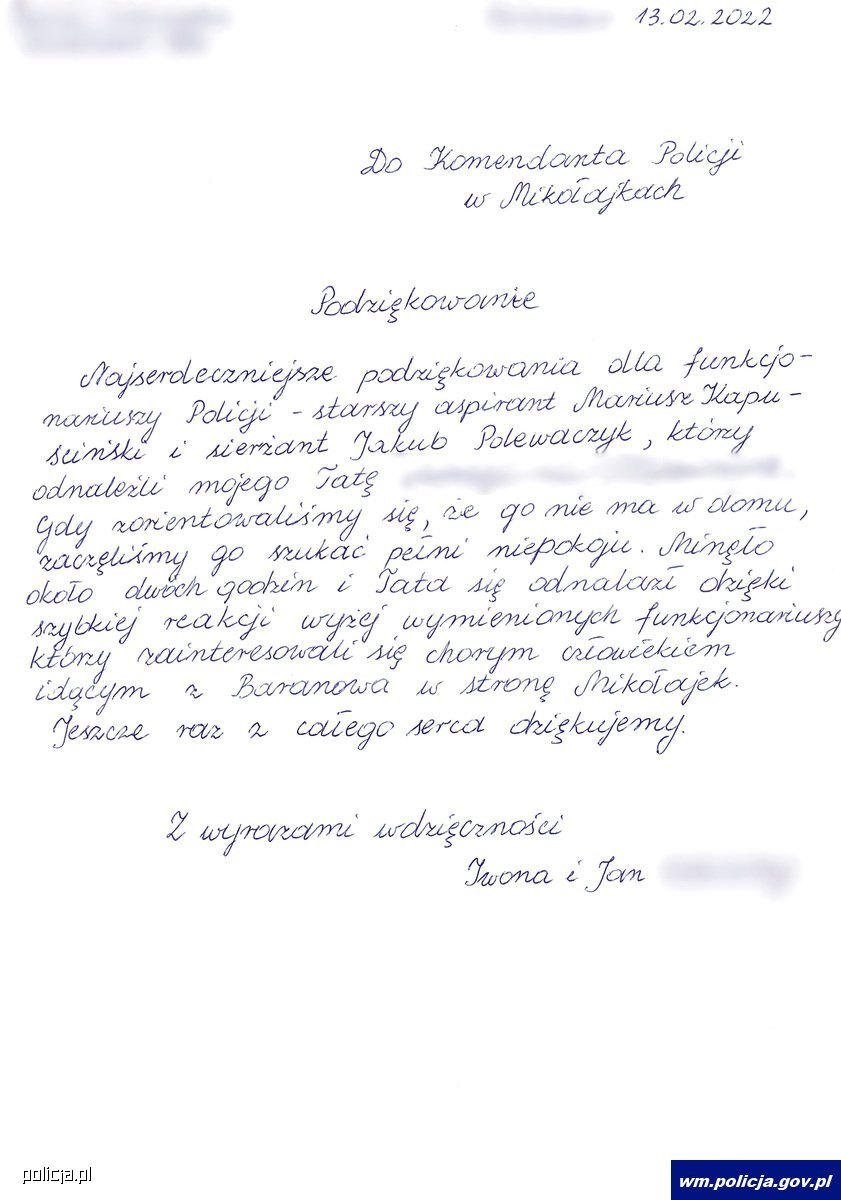 13.02.2022
Do Komendanta Policji
w Mikołajkach
Podziękowanie
Najserdeczniejsze podziękowania dla funkcjo-
nariuszy Policji - starszy aspirant Mariusz Kapu-
sciński i sierżant Jakub Polewaczyk, którzy
odnaleźli mojego Tatę
Gdy zorientowaliśmy się, że go nie ma w domu,
zaczęliśmy go szukać pełni niepokoju. Minęło
około dwóch godzin i Tata się odnalazł dzięki
szybkiej reakcji wyżej wymienionych funkcjonariuszy
którzy zainteresowali się chorym człowiekiem
idącym z Baranowa w stronę Mikołajek.
Jeszcze raz z całego serca dziękujemy.
Z wyrazami wdzięczności
Iwona i Jan
policja.pl
wm.policja.gov.pl